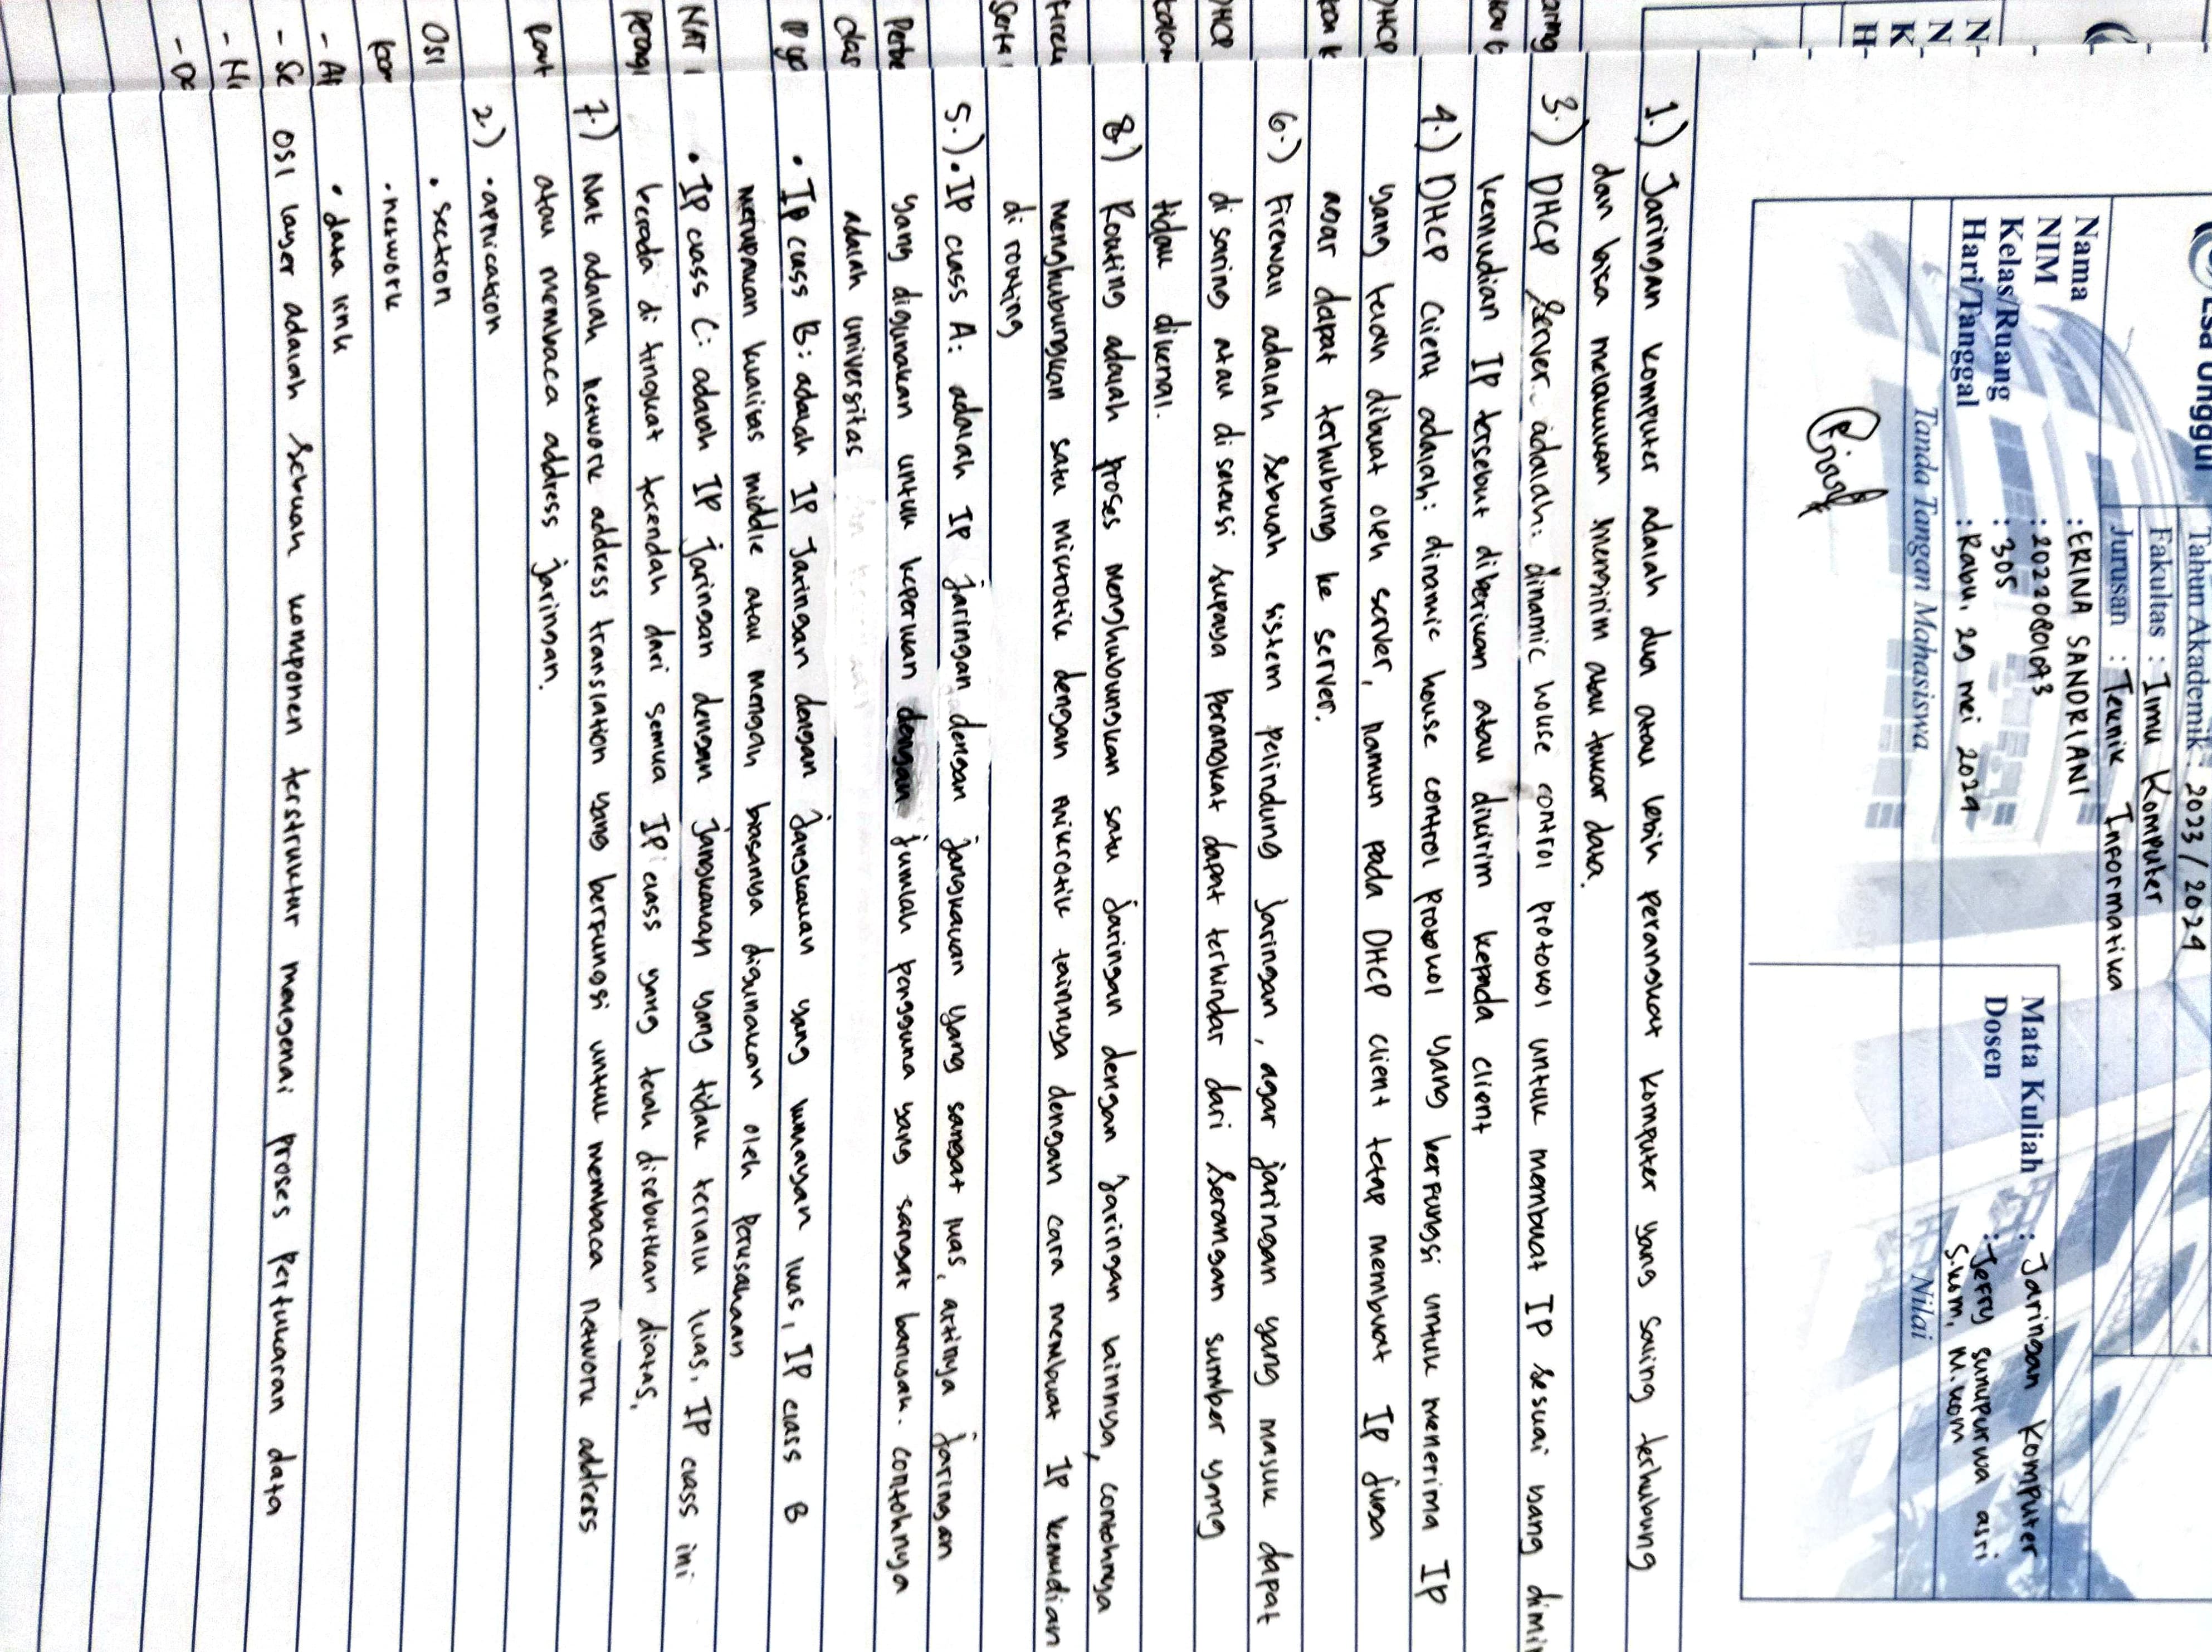 Esa Unggul
Tahun Akademik : 2023 / 2024
Fakultas : Ilmu Komputer
Jurusan : Teknik Informatika
Nama : ERINA SANDRIANI
NIM : 20220801093
Kelas/Ruang : 305
Hari/Tanggal : Rabu, 29 mei 2024
Mata Kuliah : Jaringan Komputer
Dosen : Jefry sunupurwa asri
S.kom, M.kom
Tanda Tangan Mahasiswa
Nilai
1.) Jaringan komputer adalah dua atau lebih perangkat komputer yang saling terhubung
dan bisa melakukan mengirim atau tukar data.
3.) DHCP Server adalah: dinamic house control protokol untuk membuat IP sesuai yang dimi
kemudian IP tersebut diberikan atau dikirim kepada client
4.) DHCP Client adalah: dinamic house control protokol yang berfungsi untuk menerima IP
yang telah dibuat oleh server, namun pada DHCP client tetap membuat IP juga
agar dapat terhubung ke server.
6.) Firewall adalah sebuah sistem pelindung jaringan, agar jaringan yang masuk dapat
di saring atau di seleksi supaya perangkat dapat terhindar dari serangan sumber yang
tidak dikenal.
8.) Routing adalah proses menghubungkan satu jaringan dengan jaringan lainnya, contohnya
menghubungkan satu mikrotik dengan mikrotik lainnya dengan cara membuat IP kemudian
di routing
5.) • IP class A: adalah IP jaringan dengan jangkauan yang sangat luas, artinya jaringan
yang digunakan untuk keperluan dengan jumlah pengguna yang sangat banyak. contohnya
adalah universitas
• IP class B: adalah IP Jaringan dengan jangkauan yang lumayan luas, IP class B
merupakan kualitas middle atau mengah biasanya digunakan oleh perusahaan
• IP class C: adalah IP jaringan dengan jangkauan yang tidak terlalu luas, IP class ini
berada di tingkat terendah dari semua IP class yang telah disebutkan diatas.
7.) Nat adalah network address translation yang berfungsi untuk membaca network address
atau membaca address jaringan.
2.) • aplication
• section
• network
• data link
OSI layer adalah sebuah komponen terstruktur mengenai proses pertukaran data